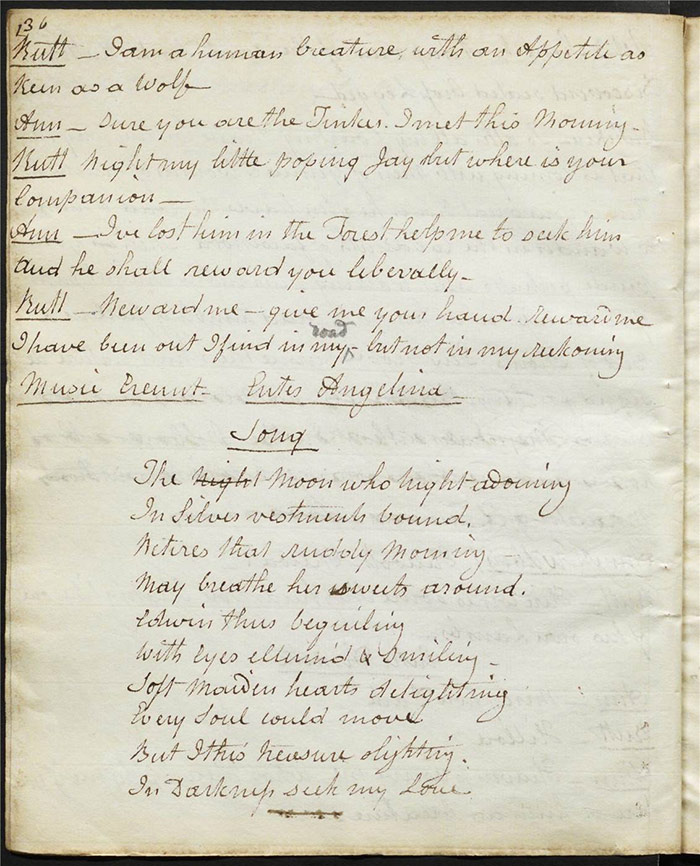 136
Rutt – I am a human creature, with an Appetite as
keen as a Wolf
Ann – Sure you are the Tinker I met this Morning –
Rutt Right my little poping Jay but where is your
Companion –
Ann – I've lost him in the Forest help me to seek him
and he shall reward you liberally –
Rutt – Reward me – give me your hand. reward me
road
I have been out I find in my – but not in my reckoning
Music Exeunt – Enter Angelina –
Song
The Night Moon who Night adorning
In Silver vestments bound,
Retires that ruddy Morning
May breathe her sweets around.
Edwin thus beguiling
With Eyes ellumin'd & Smiling –
Soft Maiden hearts delighting
Every Soul could move
But I this treasure slighting.
In Darkness seek my Love